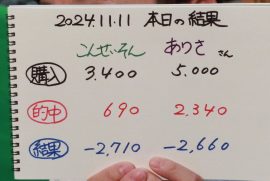 2024.11.11 本日の結果
こんせいそん ありささん
購入 3.400 5.000
的中 690 2,340
結果 -2,710 -2,660